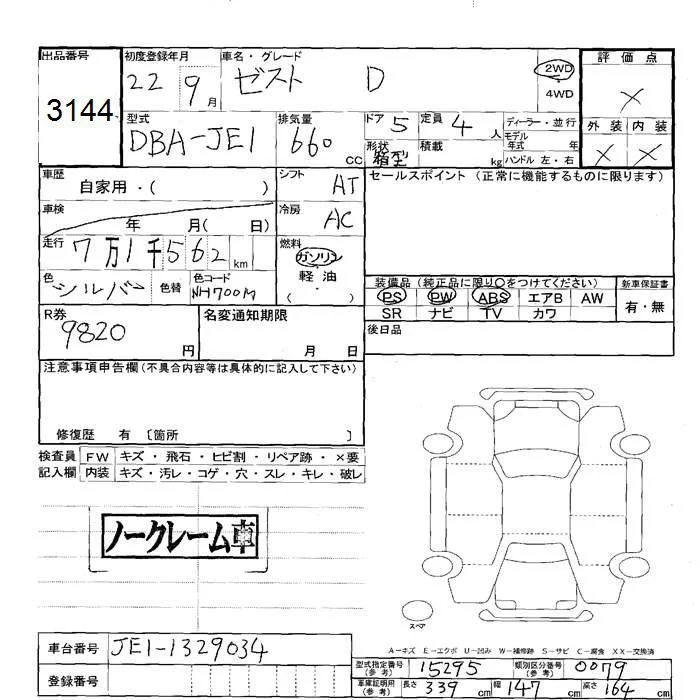 出品番号
3144
初度登録年月
22 9月
車名・グレード
ゼスト D
2WD
4WD
評価点
×
型式
DBA-JE1
排気量
660 CC
ドア 5
定員 4人
形状 箱型
積載 kg
ディーラー・並行
モデル年式 年
ハンドル 左・右
外装 内装
× ×
車歴
自家用・( )
シフト AT
セールスポイント (正常に機能するものに限ります)
車検
年 月( 日)
冷房 AC
走行
7万1千562km
燃料
ガソリン
軽油
・
( )
色 シルバー
色替
色コード
NH700M
装備品 (純正品に限り○をつけてください)
PS PW ABS エアB AW
SR ナビ TV カワ
新車保証書
有・無
R券
9820 円
名変通知期限
月 日
後日品
注意事項申告欄(不具合内容等は具体的に記入して下さい)
修復歴 有 〔箇所 〕
検査員記入欄
FW キズ・飛石・ヒビ割・リペア跡・×要
内装 キズ・汚レ・コゲ・穴・スレ・キレ・破レ
ノークレーム車
スペア
A-キズ E-エクボ U-凹み W-補修跡 S-サビ C-腐食 XX-交換済
車台番号 JE1-1329034
登録番号
型式指定番号(参考) 15295
類別区分番号(参考) 0079
車庫証明用(参考) 長さ 339cm 幅 147cm 高さ 164cm